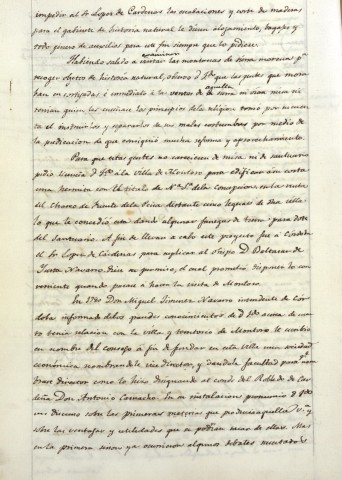 impedir al Sr Lopez de Cardenas las escabaciones y corte de maderas
para el gabinete de historia natural, le diesen alojamiento, bagajes y
todo genero de auxilios para este fin siempre que lo pidiese.
Habiendo salido a visitar las montañas de sierra morena pª
recoger objetos de historia natural, observó Dn Fdo que las gentes que mora-
ban en cortijadas è inmediato à las ventas de aquella sierra ni oian misa ni
tenian quien les enseñase los principios de la religion tomó por su cuenta
el instruirlos y separarlos de sus malas costumbres por medio de
la predicacion de que consiguió mucha reforma y aprovechamiento.
Para que estas gentes no careciesen de misa ni de santuario
pidio licencia Dn Fdo à la villa de Montoro para edificar à su costa
una hermita con el titulo de Ntra Sra de la Concepcion, en la venta
del Charco de frente de la Peña distante cinco leguas de dha villa
lo que le concedió esta dando algunas fanegas de tierra para dote
del Santuario. A fin de llevar a cabo este proyecto fue à Cordoba
el Sr Lopez de Cardenas para suplicar al Obispo D. Baltasar de
Yusta Navarro diese su permiso, el cual prometió disponer lo con-
veniente quando pasase à hacer la visita de Montoro.
En 1780 Don Miguel Jimenez Navarro intendente de Cor-
doba informado de los grandes conocimientos de Dn Fdo acerca de cuan-
to tenia relacion con la villa y territorio de Montoro le escribio
en nombre del consejo à fin de fundar en esta villa una sociedad
económica nombrandole vice director, y dandole facultad para nom-
brar director como lo hizo designando al conde del Robledo de Car-
deña Don Antonio Camacho. En su instalacion pronunció Dn Fdo
un discurso sobre las primeras materias que produce aquella va. y
sobre las ventajas y utilidades que se podian sacar de ellas. Mas
en la primera sesion ya ocurrieron algunos debates suscitados